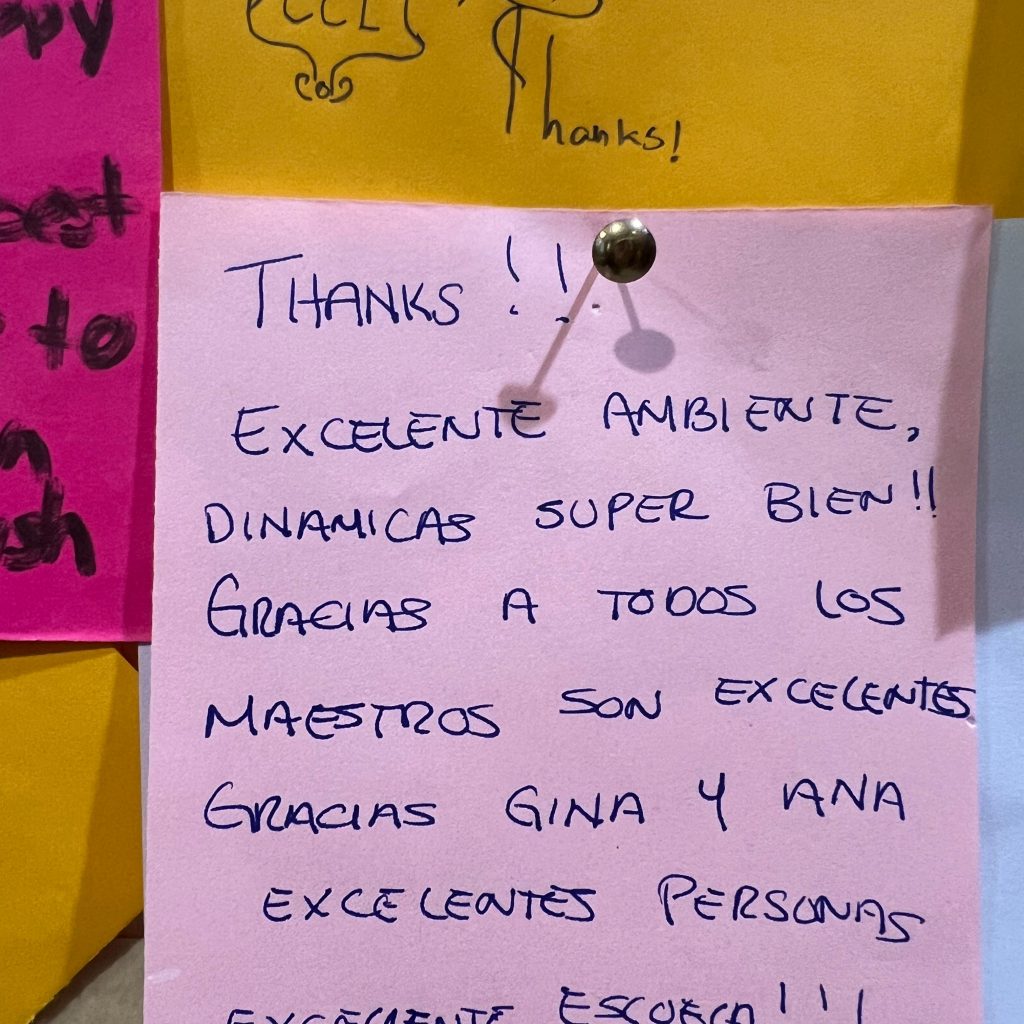 CCL
Thanks!
to
THANKS !!.
EXCELENTE AMBIENTE,
DINAMICAS SUPER BIEN!!
GRACIAS A TODOS LOS
MAESTROS SON EXCELENTES
GRACIAS GINA Y ANA
EXCELENTES PERSONAS
EXCELENTE ESCUELA!!!